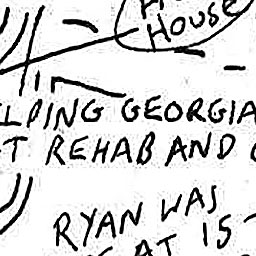 HOUSE
LPING GEORGIA
T REHAB AND
RYAN WAS
AT 15